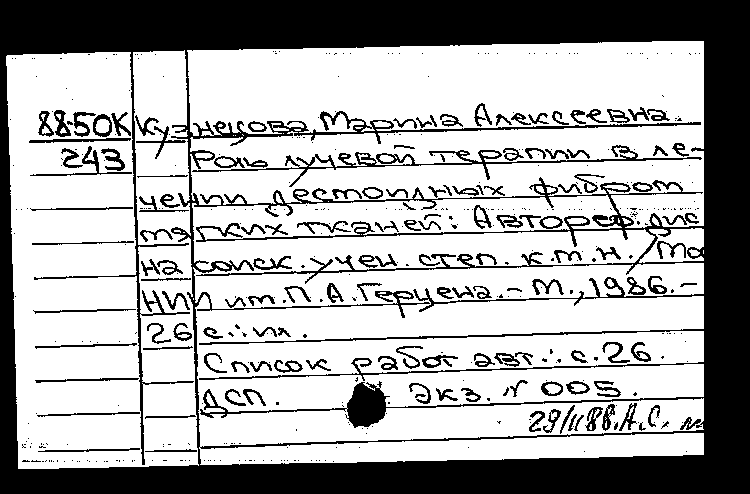 88-50К Кузнецова, Марина Алексеевна.
243 Роль лучевой терапии в ле-
чении десмоидных фибром
мягких тканей: Автореф. дис
на соиск. учен. степ. к.м.н. / Мос
НИИ им. П.А. Герцена. - М., 1986. -
26 с.: ил.
Список работ авт.: с. 26.
ДСП. Экз. N 005.
29/II 88. А.С.